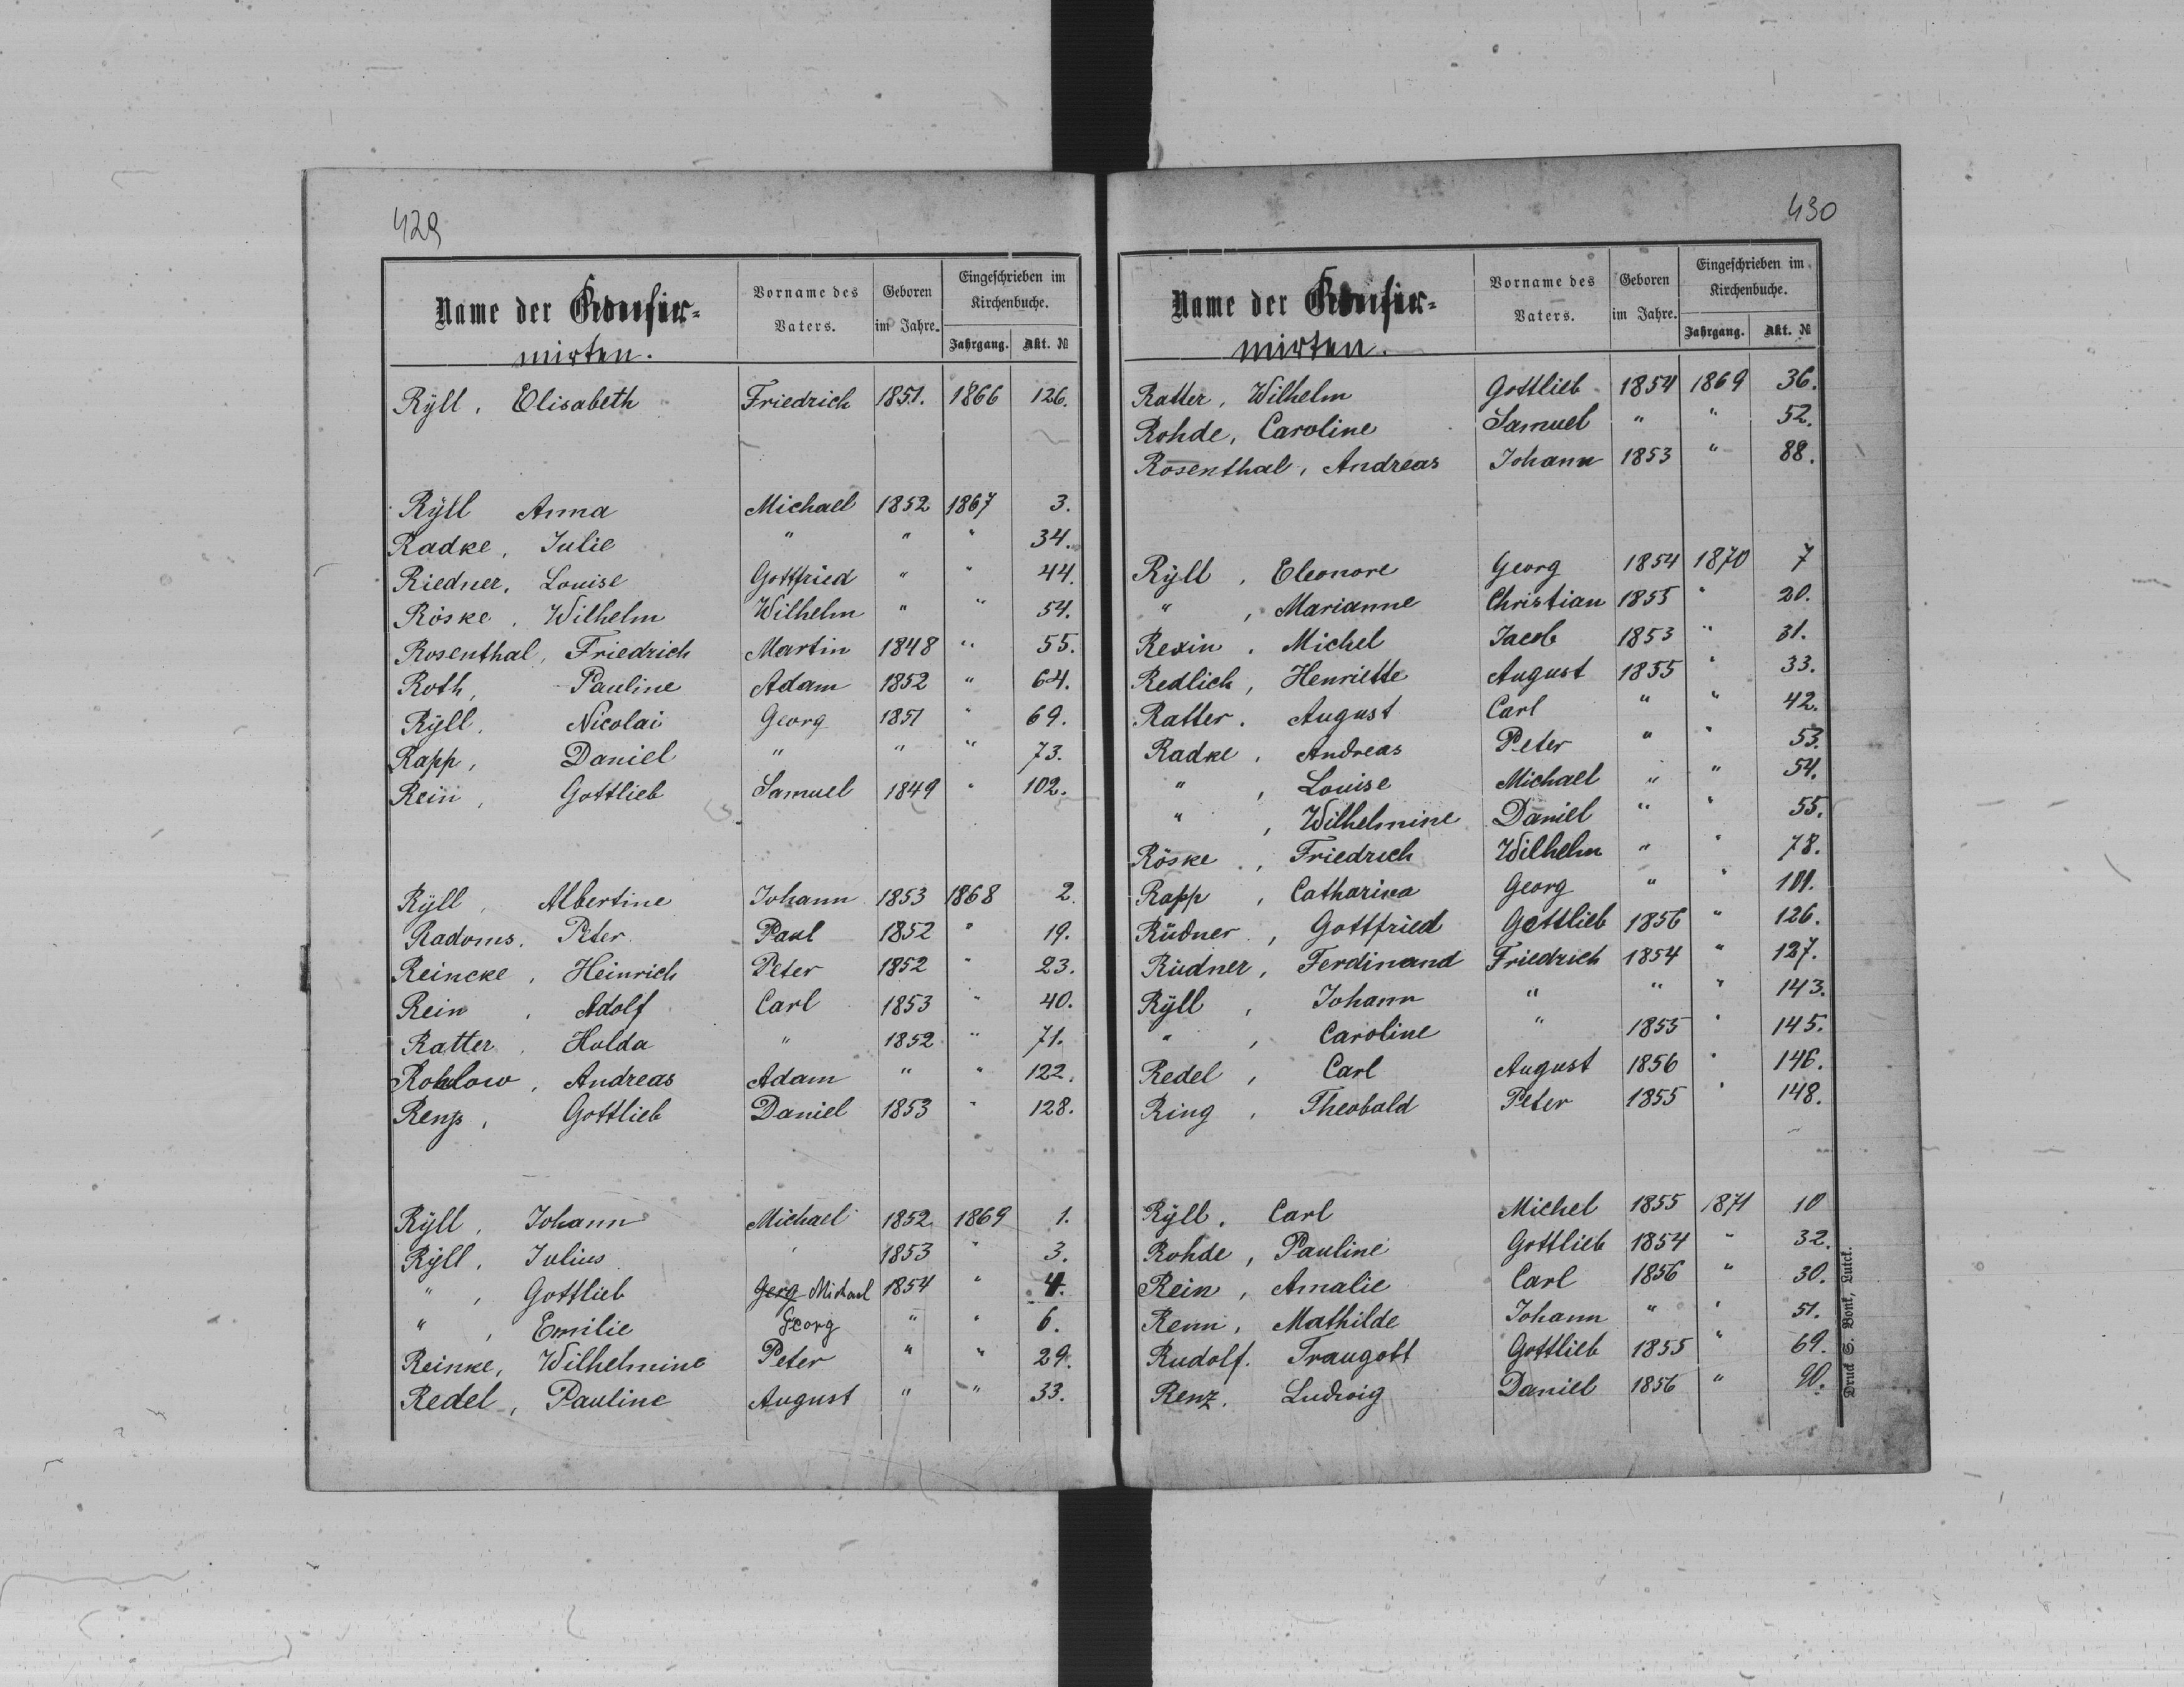 429
Name der Konfir-
mirten.
Vorname des
Vaters.
Geboren
im Jahre.
Eingeschrieben im
Kirchenbuche.
Jahrgang. Akt. №
Rÿll, Elisabeth Friedrich 1851. 1866 126.
Rÿll Anna Michael 1852 1867 3.
Radke, Julie " " " 34.
Riedner, Louise Gottfried " " 44.
Röske, Wilhelm Wilhelm " " 54.
Rosenthal, Friedrich Martin 1848 " 55.
Roth, Pauline Adam 1852 " 64.
Rÿll, Nicolai Georg 1851 " 69.
Rapp, Daniel " " " 73.
Rein, Gottlieb Samuel 1849 " 102.
Rÿll, Albertine Johann 1853 1868 2.
Radoms, Peter Paul 1852 " 19.
Reincke, Heinrich Peter 1852 " 23.
Rein, Adolf Carl 1853 " 40.
Ratter, Hulda " 1852 " 71.
Andreas Adam " " 122.
Renz, Gottlieb Daniel 1853 " 128.
Rÿll, Johann Michael 1852 1869 1.
Rÿll, Julius " 1853 " 3.
" , Gottlieb Gerg Michael 1854 " 4.
" , Emilie Georg " " 6.
Reinke, Wilhelmine Peter " " 29.
Redel, Pauline August " " 33.
430
Name der Konfir-
mirten.
Vorname des
Vaters.
Geboren
im Jahre.
Eingeschrieben im
Kirchenbuche.
Jahrgang. Akt. №
Ratter, Wilhelm Gottlieb 1854 1869 36.
Rohde, Caroline Samuel " " 52.
Rosenthal, Andreas Johann 1853 " 88.
Rÿll, Eleonore Georg 1854 1870 7
" , Marianne Christian 1855 " 20.
Rexin, Michel Jacob 1853 " 31.
Redlich, Henriette August 1855 " 33.
Ratter, August Carl " " 42.
Radke, Andreas Peter " " 53.
" , Louise Michael " " 54.
" , Wilhelmine Daniel " " 55.
Röske, Friedrich Wilhelm " " 78.
Rapp, Catharina Georg " " 101.
Rüdner, Gottfried Gottlieb 1856 " 126.
Rüdner, Ferdinand Friedrich 1854 " 127.
Rÿll, Johann " " " 143.
" , Caroline " 1855 " 145.
Redel, Carl August 1856 " 146.
Ring, Theobald Peter 1855 " 148.
Rÿll, Carl Michel 1855 1871 10
Rohde, Pauline Gottlieb 1854 " 32.
Rein, Amalie Carl 1856 " 30.
Renn, Mathilde Johann " " 51.
Rudolf, Traugott Gottlieb 1855 " 69.
Renz, Ludwig Daniel 1856 " 90.
Druck S. Bonk, Lutck.